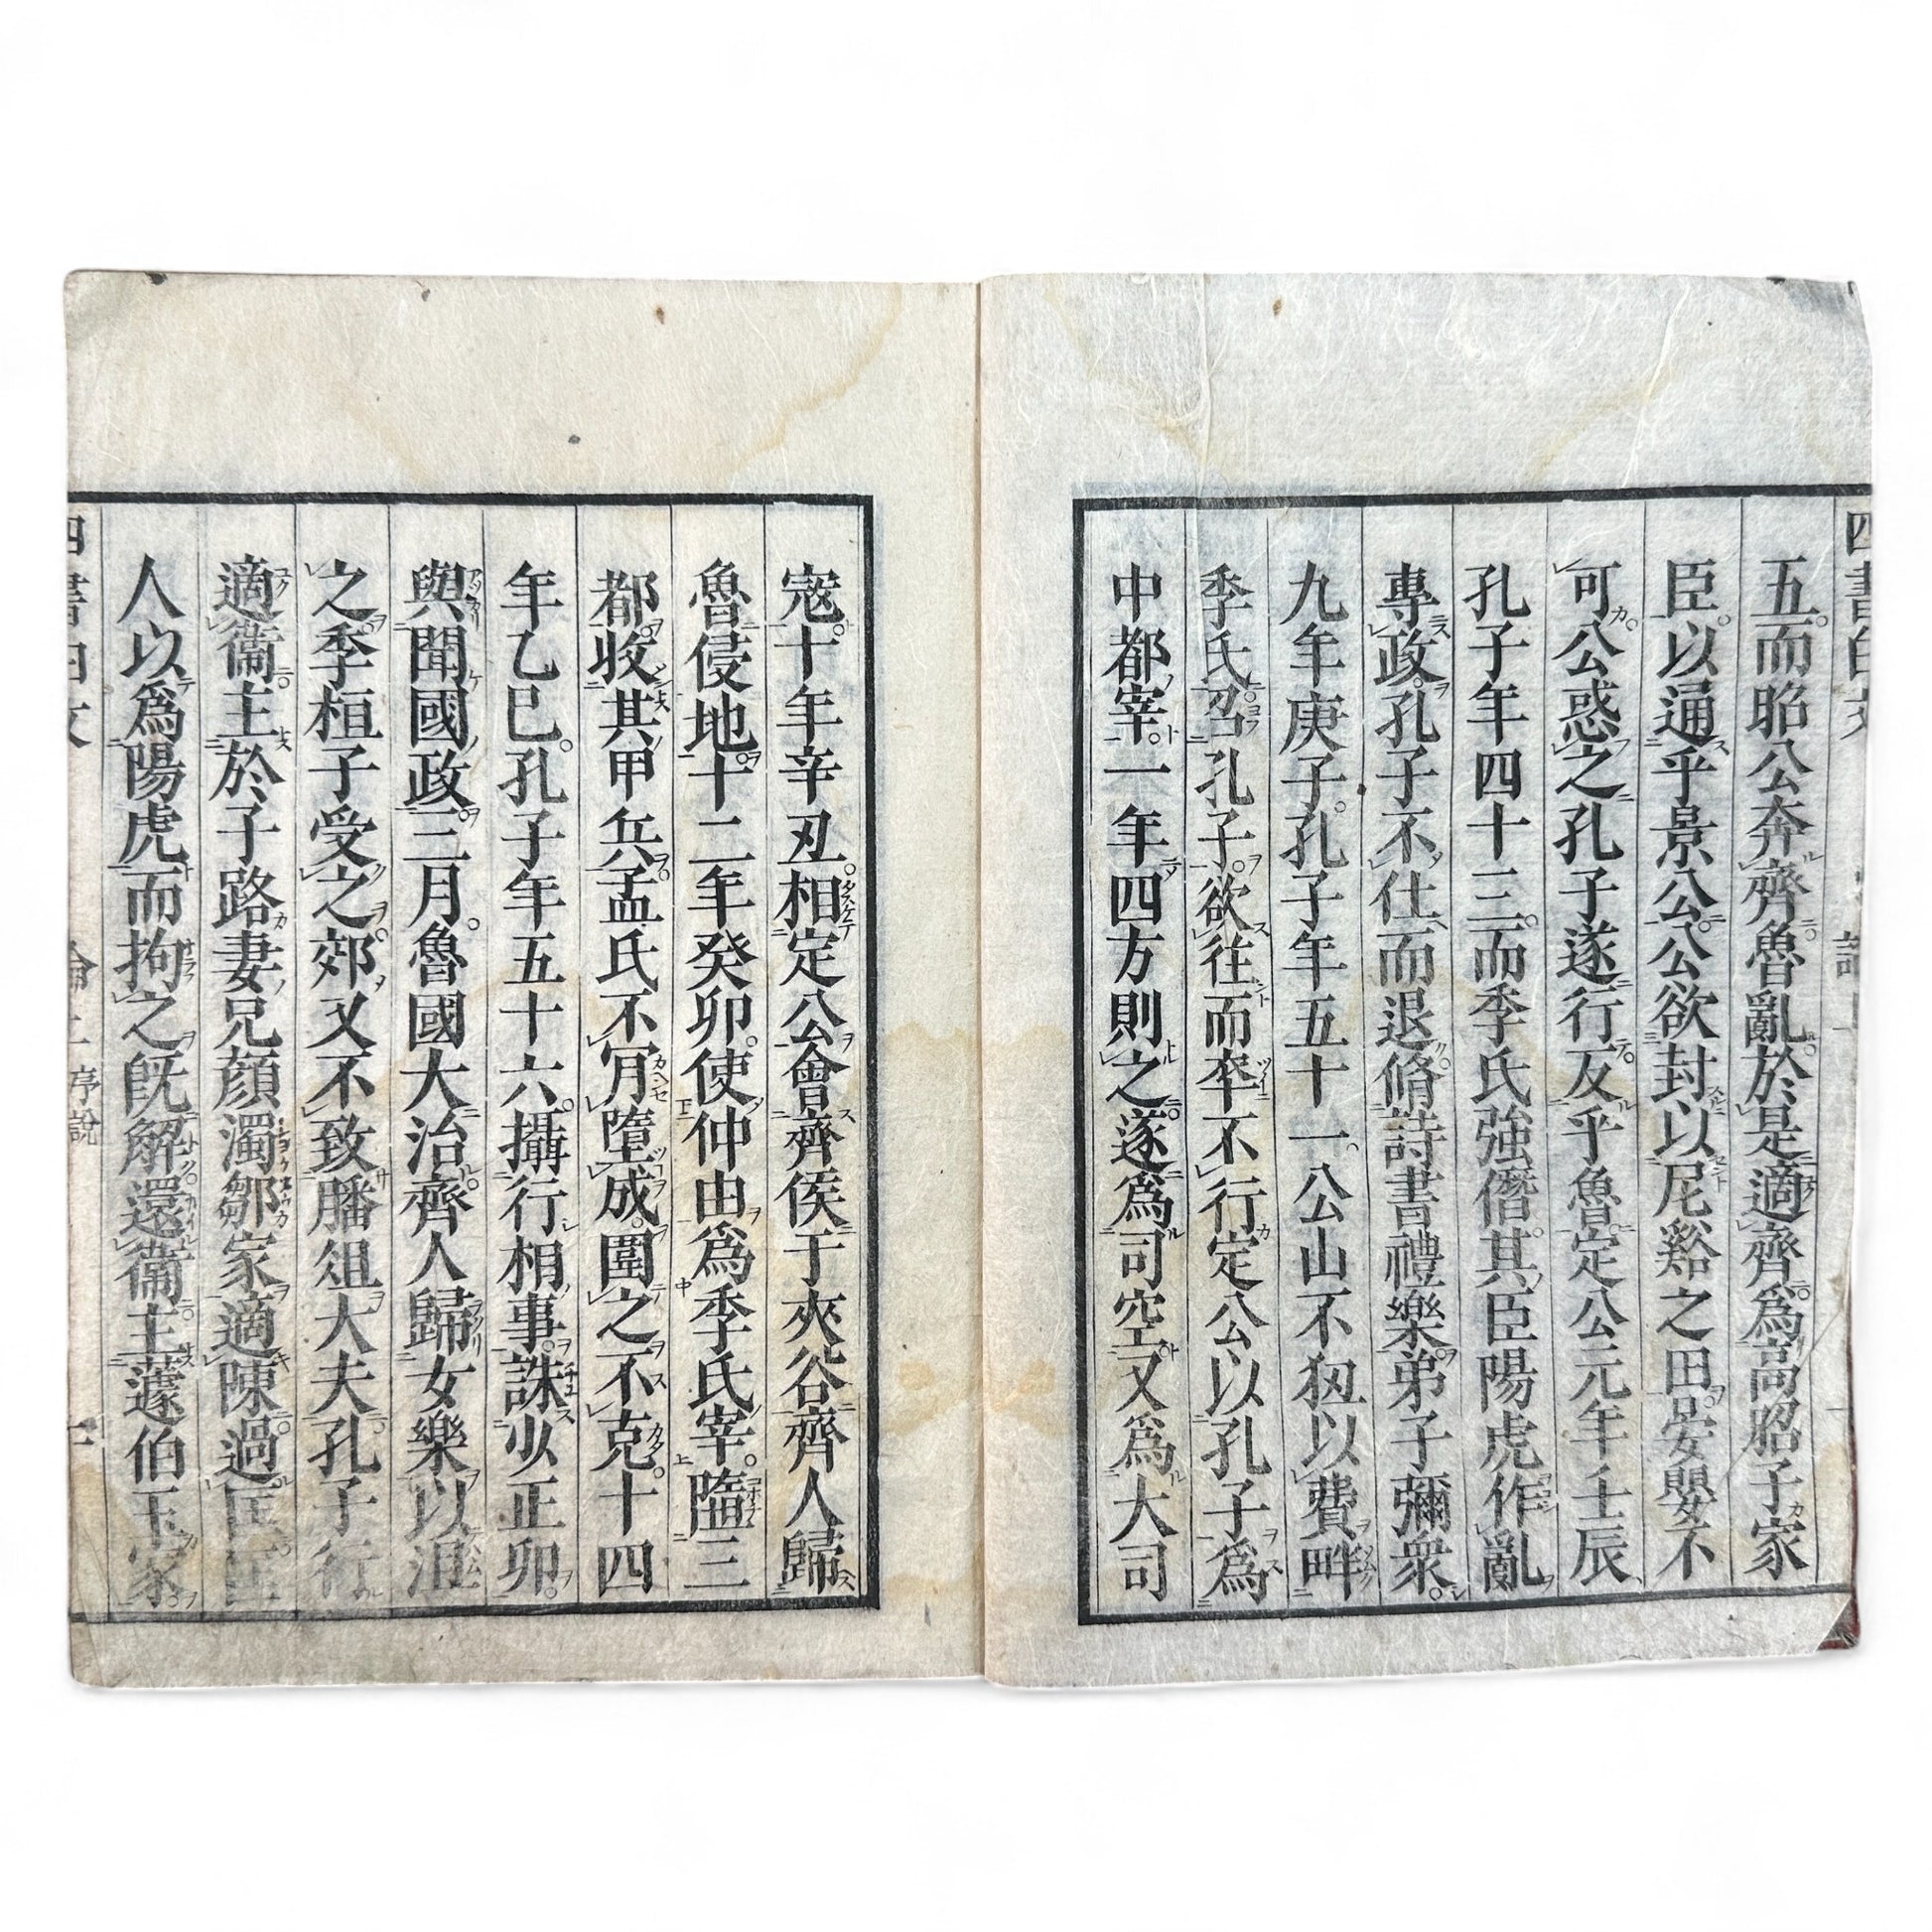 五而昭公奔齊魯亂於是適齊爲高昭子家
臣以通乎景公公欲封以尼谿之田晏嬰不
可公惑之孔子遂行反乎魯定公元年壬辰
孔子年四十三而季氏強僭其臣陽虎作亂
專政孔子不仕而退脩詩書禮樂弟子彌衆
九年庚子孔子年五十一公山不狃以費畔
季氏召孔子欲往而卒不行定公以孔子爲
中都宰一年四方則之遂爲司空又爲大司
寇十年辛丑相定公會齊侯于夾谷齊人歸
魯侵地十二年癸卯使仲由爲季氏宰隳三
都收其甲兵孟氏不肎墮成圍之不克十四
年乙巳孔子年五十六攝行相事誅少正卯
與聞國政三月魯國大治齊人歸女樂以沮
之季桓子受之郊又不致膰俎大夫孔子行
適衞主於子路妻兄顏濁鄒家適陳過匡匡
人以爲陽虎而拘之既解還衞主蘧伯玉家
序說